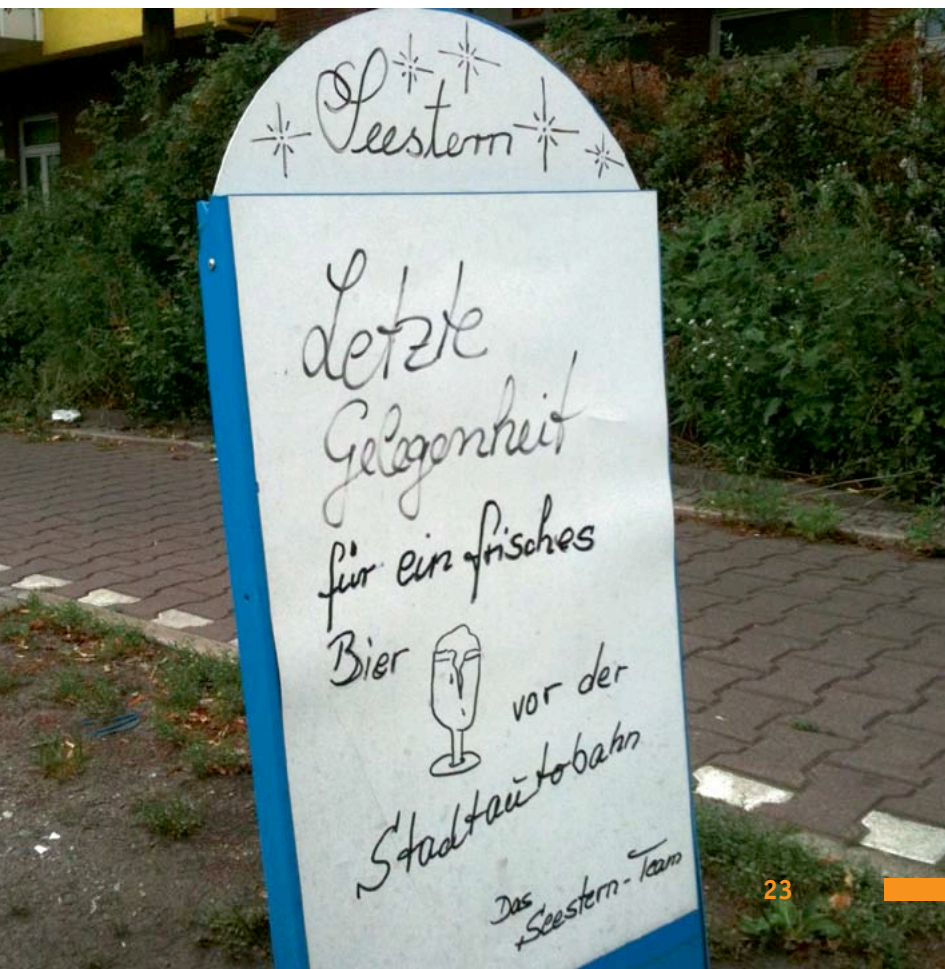 Seestern
Letzte
Gelegenheit
für ein frisches
Bier
vor der
Stadtautobahn
Das
Seestern-Team
23